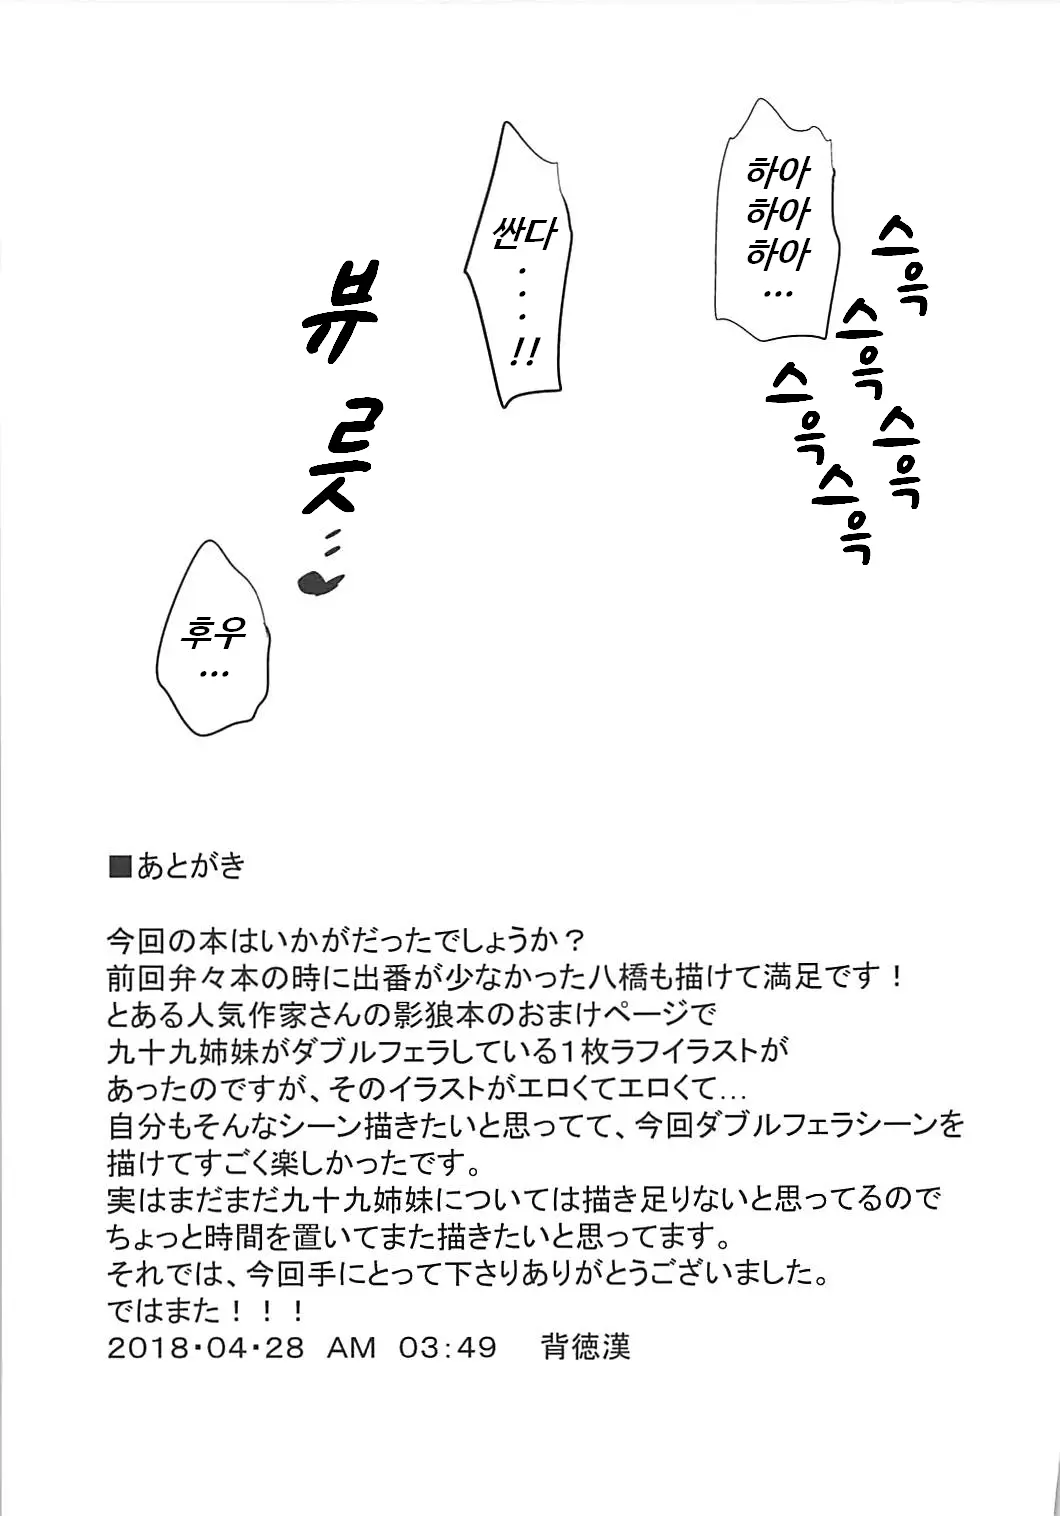 하아
하아
하아
...
스윽
스윽
스윽
스윽
스윽
싼다
...
!!
뷰릇
후우
...
■あとがき
今回の本はいかがだったでしょうか？
前回弁々本の時に出番が少なかった八橋も描けて満足です！
とある人気作家さんの影狼本のおまけページで
九十九姉妹がダブルフェラしている１枚ラフイラストが
あったのですが、そのイラストがエロくてエロくて…
自分もそんなシーン描きたいと思ってて、今回ダブルフェラシーンを
描けてすごく楽しかったです。
実はまだまだ九十九姉妹については描き足りないと思ってるので
ちょっと時間を置いてまた描きたいと思ってます。
それでは、今回手にとって下さりありがとうございました。
ではまた！！！
２０１８・０４・２８　ＡＭ　０３：４９　背徳漢